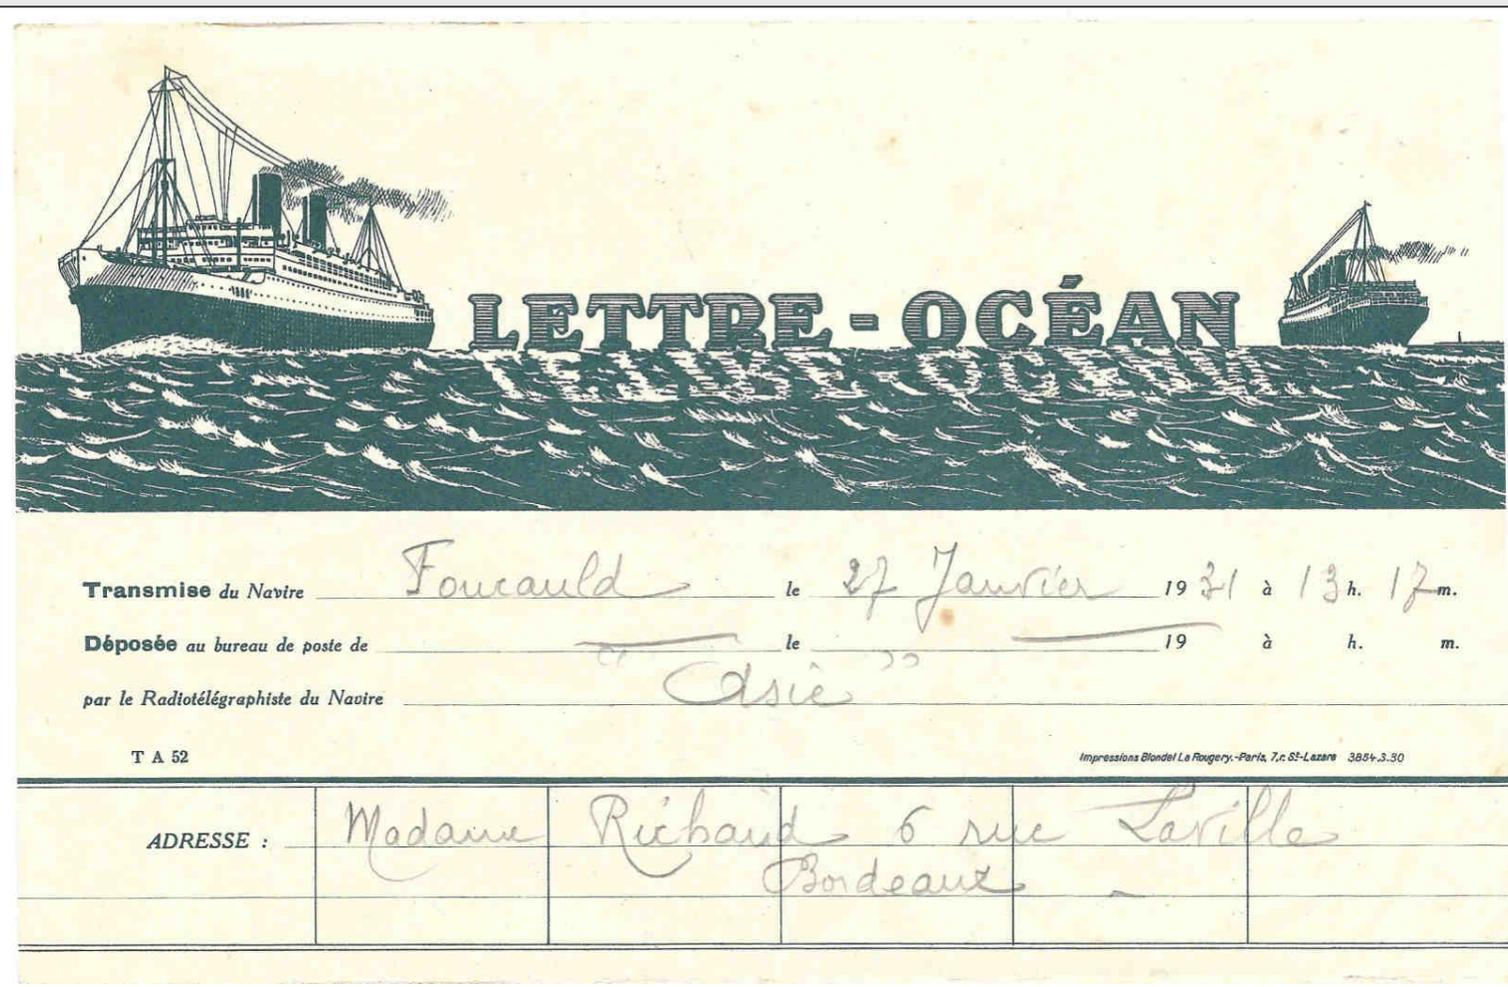 LETTRE - OCÉAN
Transmise du Navire Foucauld le 27 Janvier 1931 à 13 h. 17 m.
Déposée au bureau de poste de le 19 à h. m.
par le Radiotélégraphiste du Navire "Asie"
T A 52
Impressions Blondel La Rougery.-Paris, 7, r. St-Lazare 3854.3.30
ADRESSE : Madame Richaud 6 rue Laville
Bordeaux